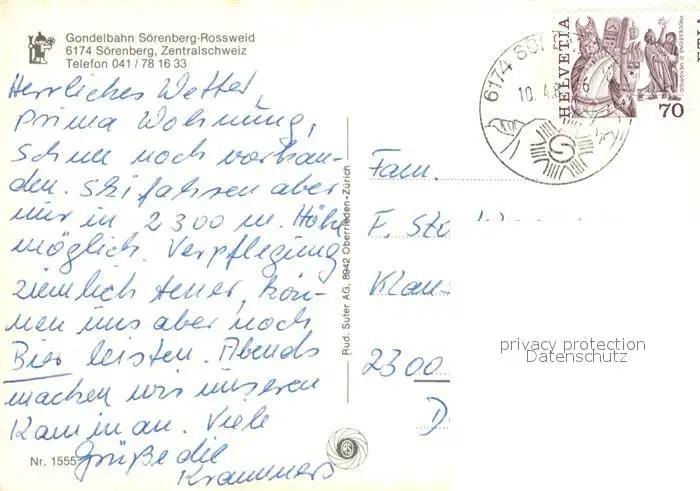 Gondelbahn Sörenberg-Rossweid
6174 Sörenberg, Zentralschweiz
Telefon 041 / 78 16 33
Herrliches Wetter,
prima Wohnung,
Schnee noch vorhan-
den. Skifahren aber
nur in 2300 m. Höhe
möglich. Verpflegung
ziemlich teuer, kön-
nen uns aber noch
Bier leisten. Abends
machen wir unseren
Kamin an. Viele
Grüße die
Krammers
Nr. 1555
Rud. Suter AG, 8942 Oberrieden-Zürich
6174 SÖ
10. 4. 8
HELVETIA
PROCESSIONE DI MENDRISIO
70
Fam.
F. Sto
Klau-
2300
D
privacy protection
Datenschutz